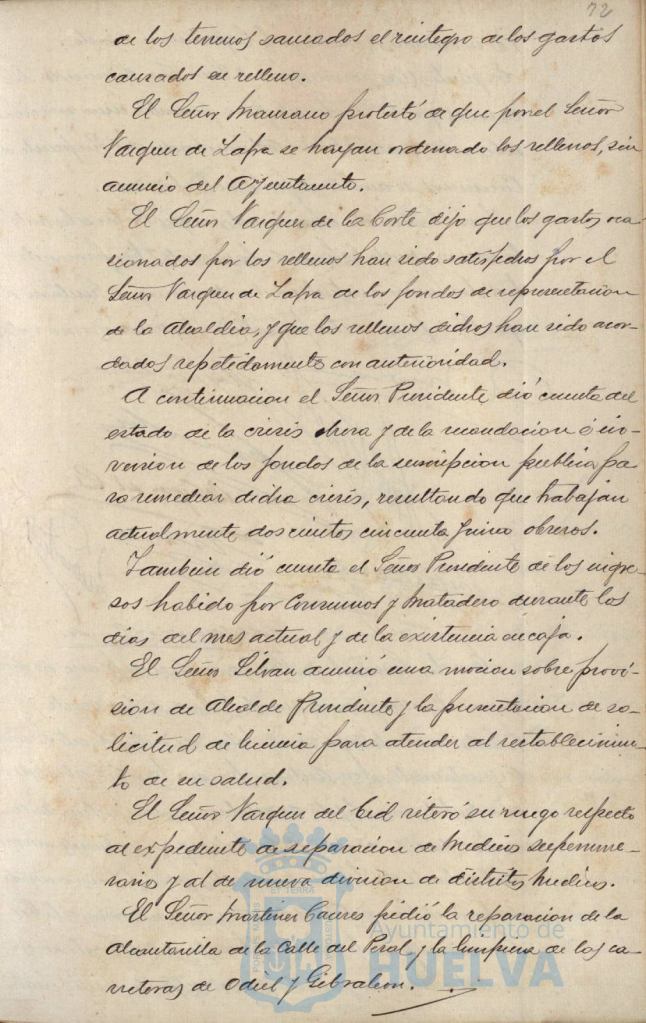 72
de los terrenos saneados el reintegro de los gastos
causados en relleno.
El Señor Manzano protestó de que por el Señor
Vazquez de Zafra se hayan ordenado los rellenos, sin
anuncio del Ayuntamiento.
El Señor Vazquez de la Corte dijo que los gastos oca-
sionados por los rellenos han sido satisfechos por el
Señor Vazquez de Zafra de los fondos de representacion
de la Alcaldia, y que los rellenos dichos han sido acor-
dados repetidamente con anterioridad.
A continuacion el Señor Presidente dió cuenta del
estado de la crisis obrera y de la recaudacion é in-
version de los fondos de la suscripcion publica pa-
ra remediar dicha crisis, resultando que trabajan
actualmente doscientos cincuenta y cinco obreros.
Tambien dió cuenta el Señor Presidente de los ingre-
sos habido por Consumos y Matadero durante los
dias del mes actual y de la existencia en caja.
El Señor Silvan anunció una mocion sobre provi-
sion de Alcalde Presidente y la presentacion de so-
licitud de licencia para atender al restablecimien-
to de su salud.
El Señor Vazquez del Cid reiteró su ruego respecto
al expediente de separacion de Medicos supernume-
rarios y al de nueva division de distritos medicos.
El Señor Martinez pidió la reparacion de la
alcantarilla de la Calle del Peral y la limpieza de las ca-
rreteras de Odiel y Gibraleon.
Ayuntamiento de
HUELVA